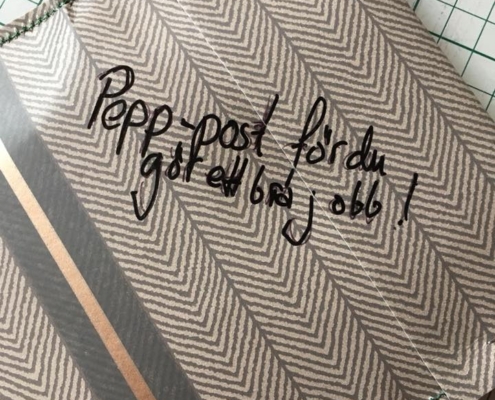 Pepp-post för du
gör ett bra jobb!